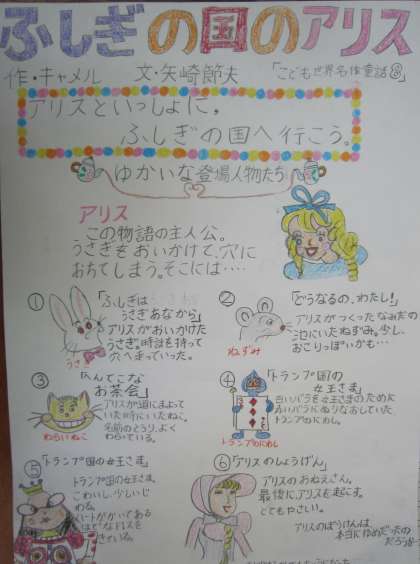 ふしぎの国のアリス
作・キャメル 文・矢崎節夫 「こども世界名作童話⑧」
アリスといっしょに、
ふしぎの国へ行こう。
ゆかいな登場人物たち
アリス
この物語の主人公。
うさぎをおいかけて、穴に
おちてしまう。そこには‥‥
①
「ふしぎは
うさぎあなから」
アリスがおいかけた
うさぎ。時計を持って
穴へ走っていった。
うさぎ
②
「どうなるの、わたし!」
アリスがつくったなみだの
池にいたねずみ。少し、
おこりっぽいかも…
ねずみ
③
「へんてこな
お茶会」
アリスが道にまよって
いた時にいたねこ。
名前のとうり、よく
わらっている。
わらいねこ
④
「トランプ国の
女王さま」
白いバラを女王さまのために
赤いバラにぬりなおしていた
トランプのにわし。
トランプのにわし
⑤
「トランプ国の女王さま」
トランプ国の女王さま。
こわいし、少しいじ
わる。
ハートがかいてある
はでなドレスを
きている。
⑥
「アリスのしょうげん」
アリスのおねえさん。
最後に、アリスを起こす。
とてもやさしい。
アリスのぼうけんは、
本当にゆめだったの
だろうか…